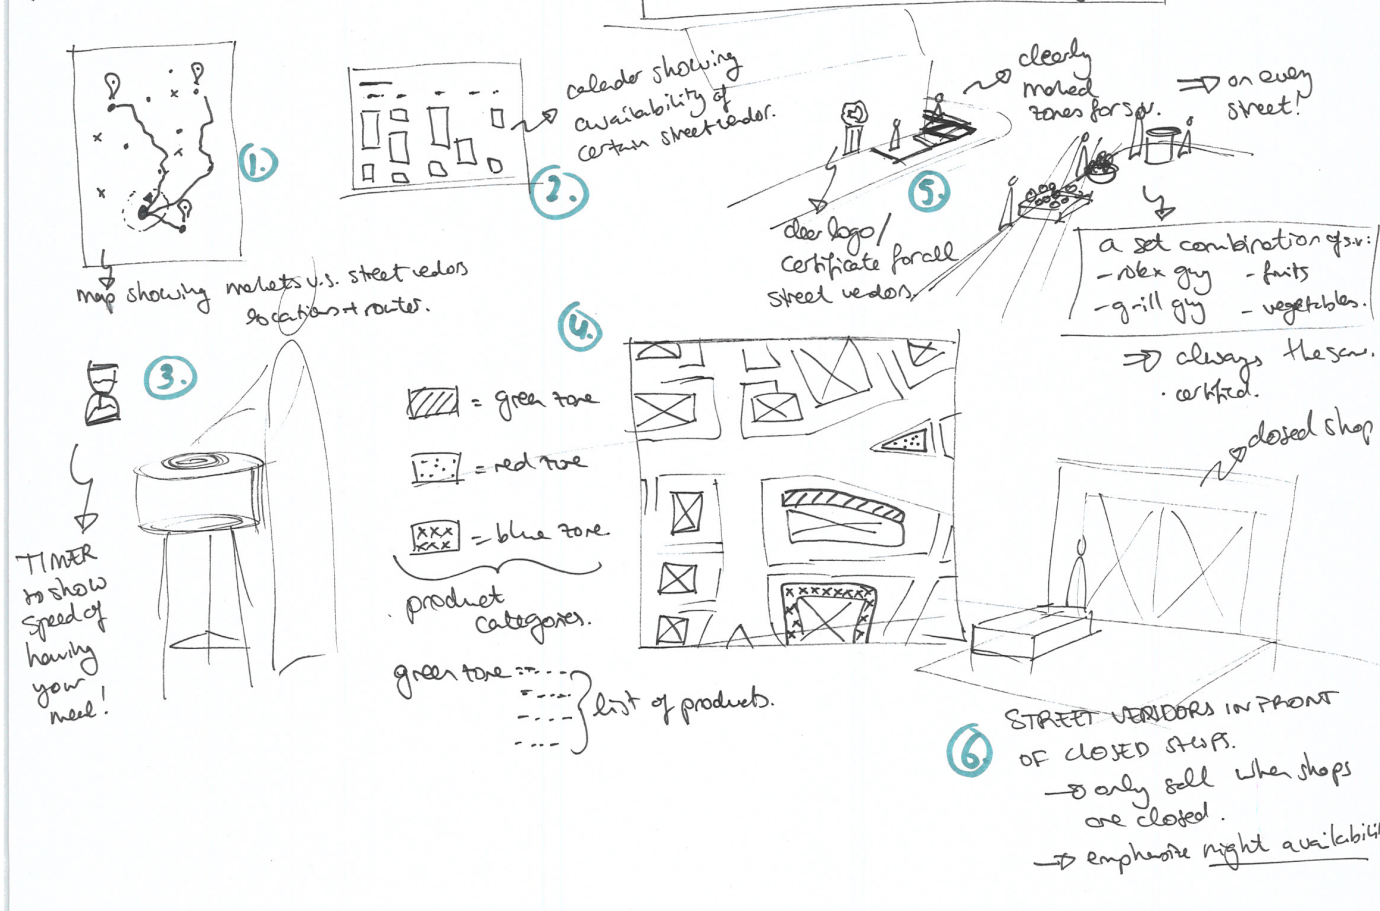 1.
map showing markets v.s. street vedors
locations + routes.
2.
calender showing
availability of
certain street vedor.
3.
TIMER
to show
speed of
having
your
meal!
4.
= green zone
= red zone
= blue zone
product
categories.
green zone =
list of products.
5.
clearly
marked
zones for s.v.
on every
street!
clear logo/
certificate for all
street vedors
a set combination of s.v.:
guy - fruits
- grill guy - vegetables.
always the same.
certified.
closed shop
6.
STREET VENDORS IN FRONT
OF CLOSED SHOPS.
only sell when shops
are closed.
emphasize night availabili